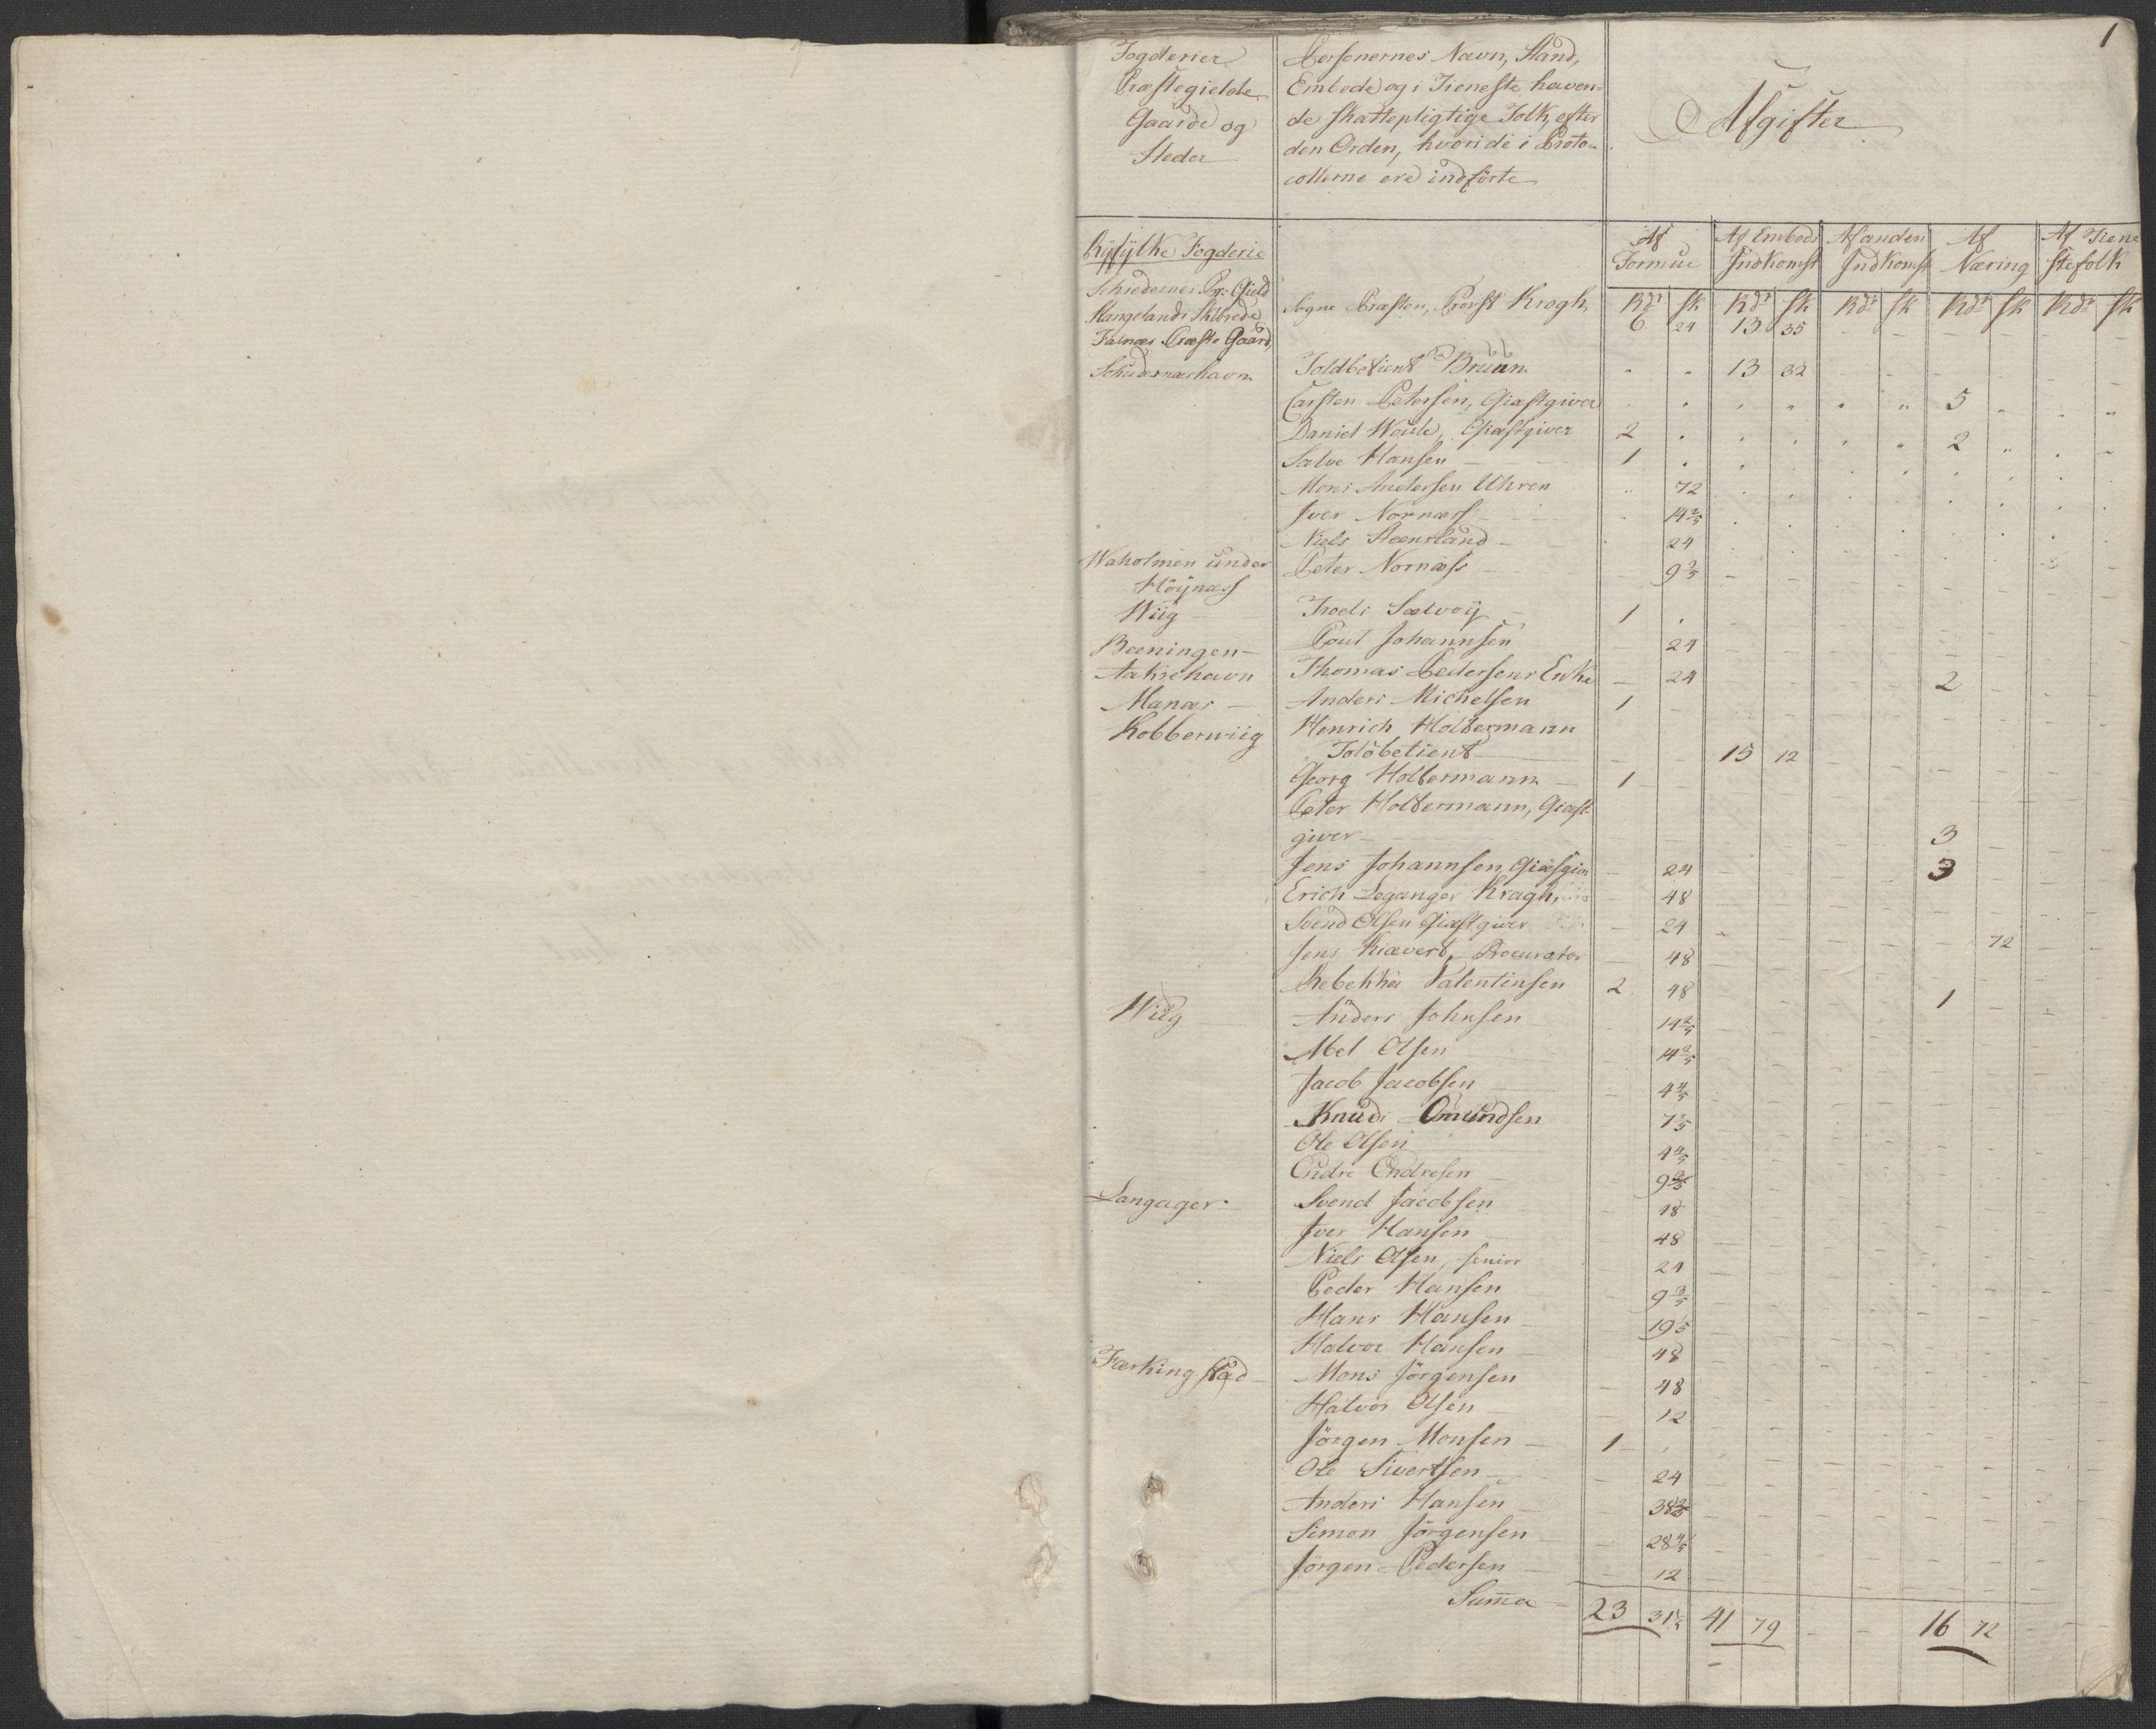 1
Fogderier Præstegielde Gaarde og Steder | Personernes Navn, Stand, Embede og i Tieneste havende skattepligtige Folk, efter den Orden, hvori de i Protocollerne ere indførte | Afgifter
Ryfylke Fogderie | Af Formue | Af Embeds Indkomst | Af anden Indkomst | Af Næring | Af Tienestefolk
Rdr Sk | Rdr Sk | Rdr Sk | Rdr Sk | Rdr Sk
Schudesnes Pr: Gield
Stangelands Skibrede
Falnæs Præste Gaard | Sogne Præsten, Provst Krogh | 6 24 | 13 35
Schudesnæshavn | Toldbetient Bruun | " " | 13 32
Carsten Petersen, Giæstgiver | 5 "
Daniel Woule, Giæstgiver | 2 " | 2 "
Salve Hansen | 1 "
Mons Andersen Uhren | " 72
Iver Nornæss | 14 2/5
Niels Steensland | 24
Waholmen under Höynæss | Peter Nornæss | 9 3/5
Wiig | Troels Salvoÿ | 1 "
Beeningen | Poul Johannsen | 24
Aakrehavn | Thomas Pedersens Enke | 24 | 2
Manæs | Anders Michelsen | 1
Kobberwiig | Henrich Holtermann
Toldbetient | 15 12
Georg Holtermann | 1
Peter Holtermann, Giæst-
giver | 3
Jens Johannsen, Giæstgiver | 24 | 3
Erich Leganger Kragh | 48
Svend Olsen Giæstgiver | 24 | 72
Jens Kiævert, Procurator | 48
Rebekka Valentinsen | 2 48 | 1
Wiig | Anders Johnsen | 14 2/5
Abel Olsen | 14 2/5
Jacob Jacobsen | 4 4/5
Knud Omundsen | 7 1/5
Ole Olsen | 4 4/5
Endre Endresen | 9 3/5
Langager | Svend Jacobsen | 18
Iver Hansen | 48
Niels Olsen, senior | 24
Peder Hansen | 9 3/5
Hans Hansen | 19 1/5
Halvor Hansen | 48
Færkingstad | Mons Jörgensen | 48
Halvor Olsen | 12
Jörgen Monsen | 1 "
Ole Sivertsen | 24
Anders Hansen | 38 2/5
Simon Jörgensen | 28 4/5
Jörgen Pedersen | 12
Summa | 23 31 1/5 | 41 79 | 16 72